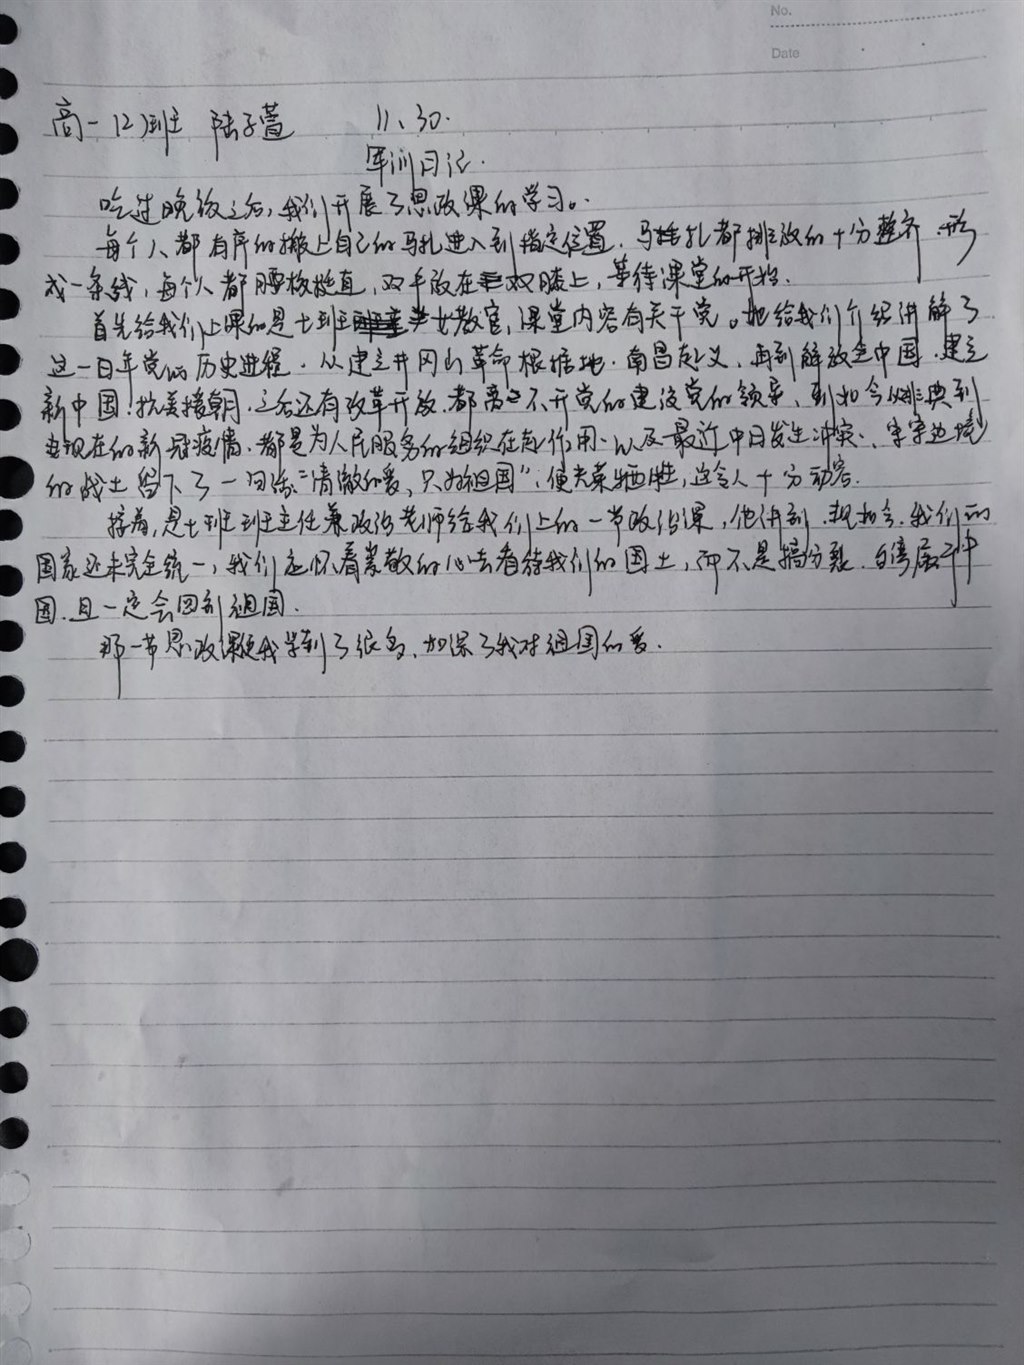 No.
Date
高一12班 陆子萱 11、30.
军训日记.
吃过晚饭之后,我们开展了思政课的学习。
每个人都有序的搬上自己的马扎进入到指定位置.马扎都排放的十分整齐.形
成一条线,每个人都腰板挺直,双手放在双膝上,等待课堂的开始.
首先给我们上课的是七班女教官,课堂内容有关于党。她给我们介绍讲解了
这一百年党的历史进程.从建立井冈山革命根据地.南昌起义.再到解放全中国.建立
新中国.抗美援朝.之后还有改革开放.都离不开党的建设党的领导、到如今
现在的新冠疫情.都是为人民服务的组织在起作用.以及最近中日发生冲突.
的战士留下了一句"清澈的爱,只为祖国",便光荣牺牲,这令人十分动容.
接着,是七班班主任兼政治老师给我们上的一节政治课,他讲到.现如今.我们的
国家还未完全统一,我们应怀着崇敬的心去看待我们的国土,而不是搞分裂.台湾属于中
国.且一定会回到祖国.
那一节思政课使我学到了很多.加深了我对祖国的爱.